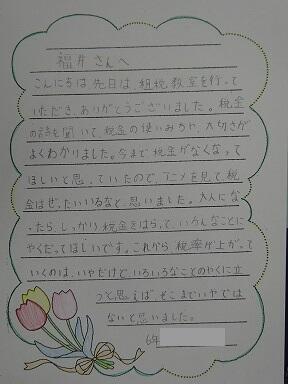 福井さんへ
こんにちは先日は、租税教室を行って
いただき、ありがとうございました。税金
の話を聞いて税金の使いみちや、大切さが
よくわかりました。今まで税金がなくなって
ほしいと思っていたので、アニメを見て税
金はぜったいいるなと思いました。大人にな
ったら、しっかり税金をはらって、いろんなことに
やくだってほしいです。これから税率が上がって
いくのは、いやだけど、いろいろなことのやくに立
つと思えば、そこまでいやでは
ないと思いました。
6年